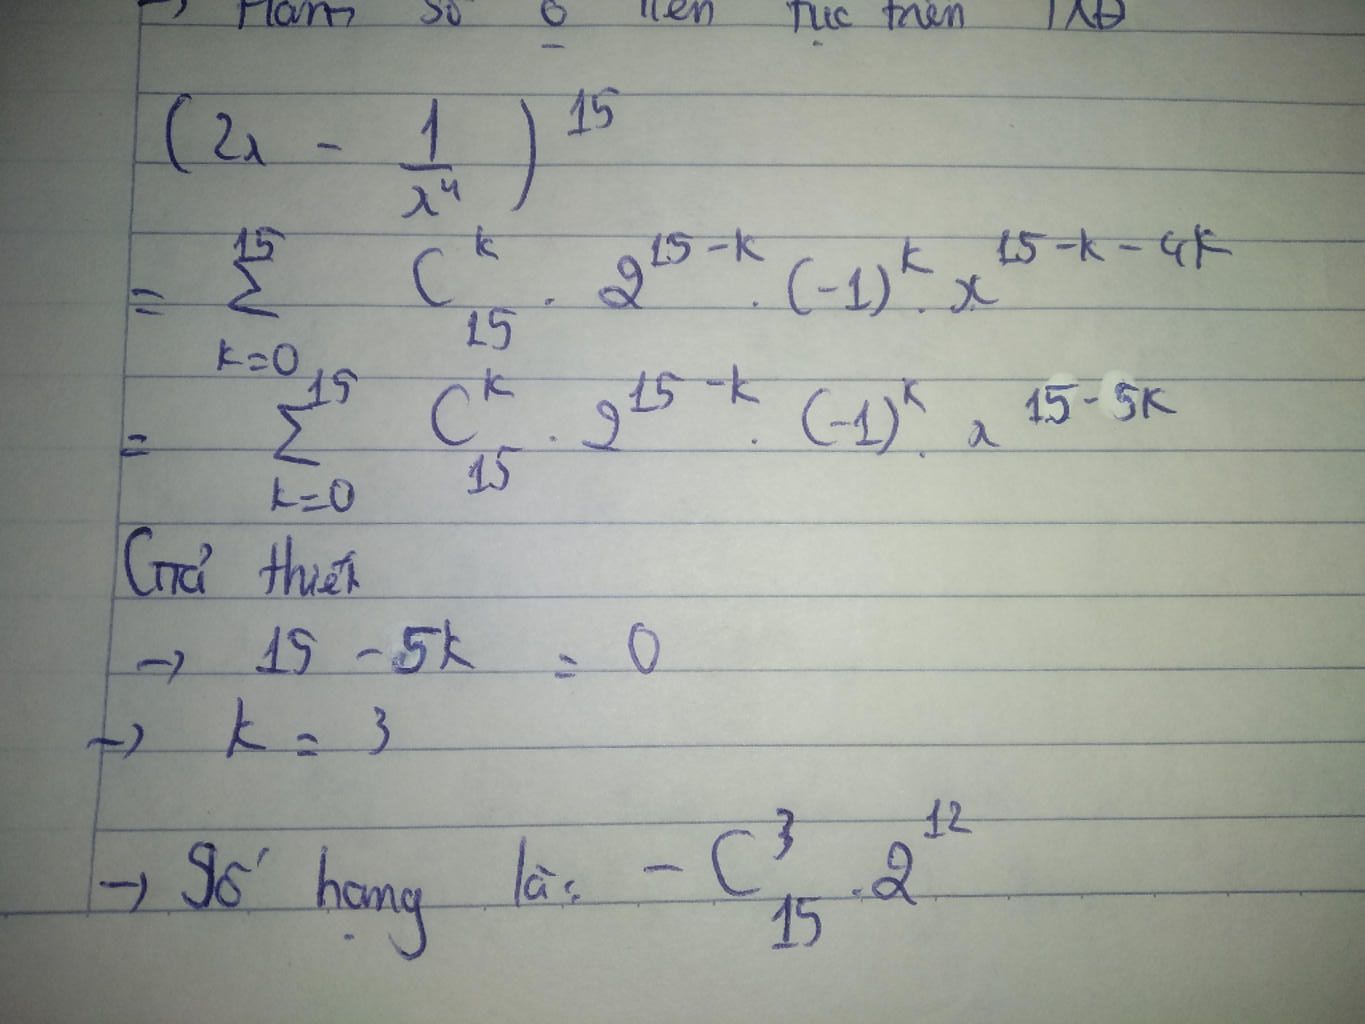 → Hàm số 0 liên tục trên TXĐ
(2x - 1/x⁴)¹⁵
= Σ_{k=0}^{15} C_{15}^{k} . 2^{15-k} . (-1)^{k} . x^{15-k-4k}
= Σ_{k=0}^{15} C_{15}^{k} . 2^{15-k} . (-1)^{k} . x^{15-5k}
Giả thiết
→ 15 - 5k = 0
→ k = 3
→ Số hạng là: - C_{15}^{3} . 2^{12}